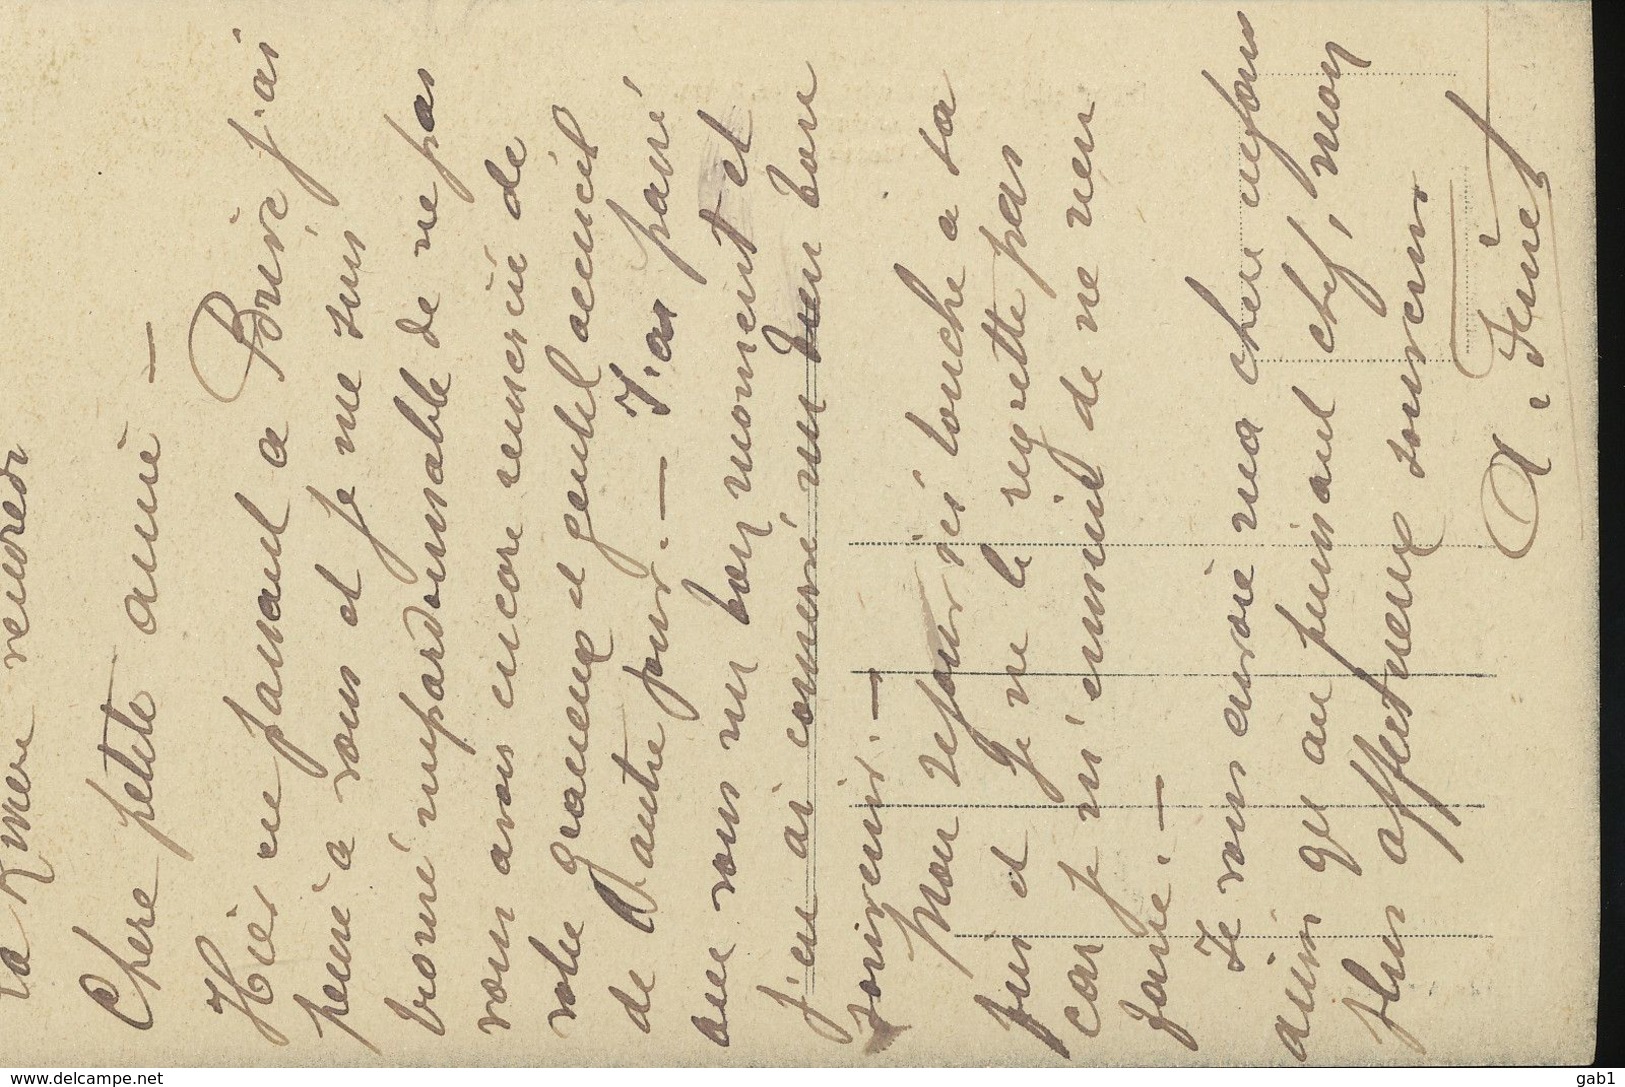 La Rivière vendredi
Chère petite amie —
Hier en passant a Brive j'ai
pensé a vous et je me suis
trouvé impardonnable de ne pas
vous avoir encore remercié de
votre gracieux et gentil accueil
de l'autre jour. — J'ai passé
avec vous un bon moment et
j'en ai conservé un bien bon
souvenir. —
Mon séjour ici touche a sa
fin et je ne le regrette pas
car je m'ennuie de ne rien
faire. —
Je vous envoie ma chère
ainsi qu'au puissant chef, mon
plus affectueux souvenir
A.
www.delcampe.net
gab1